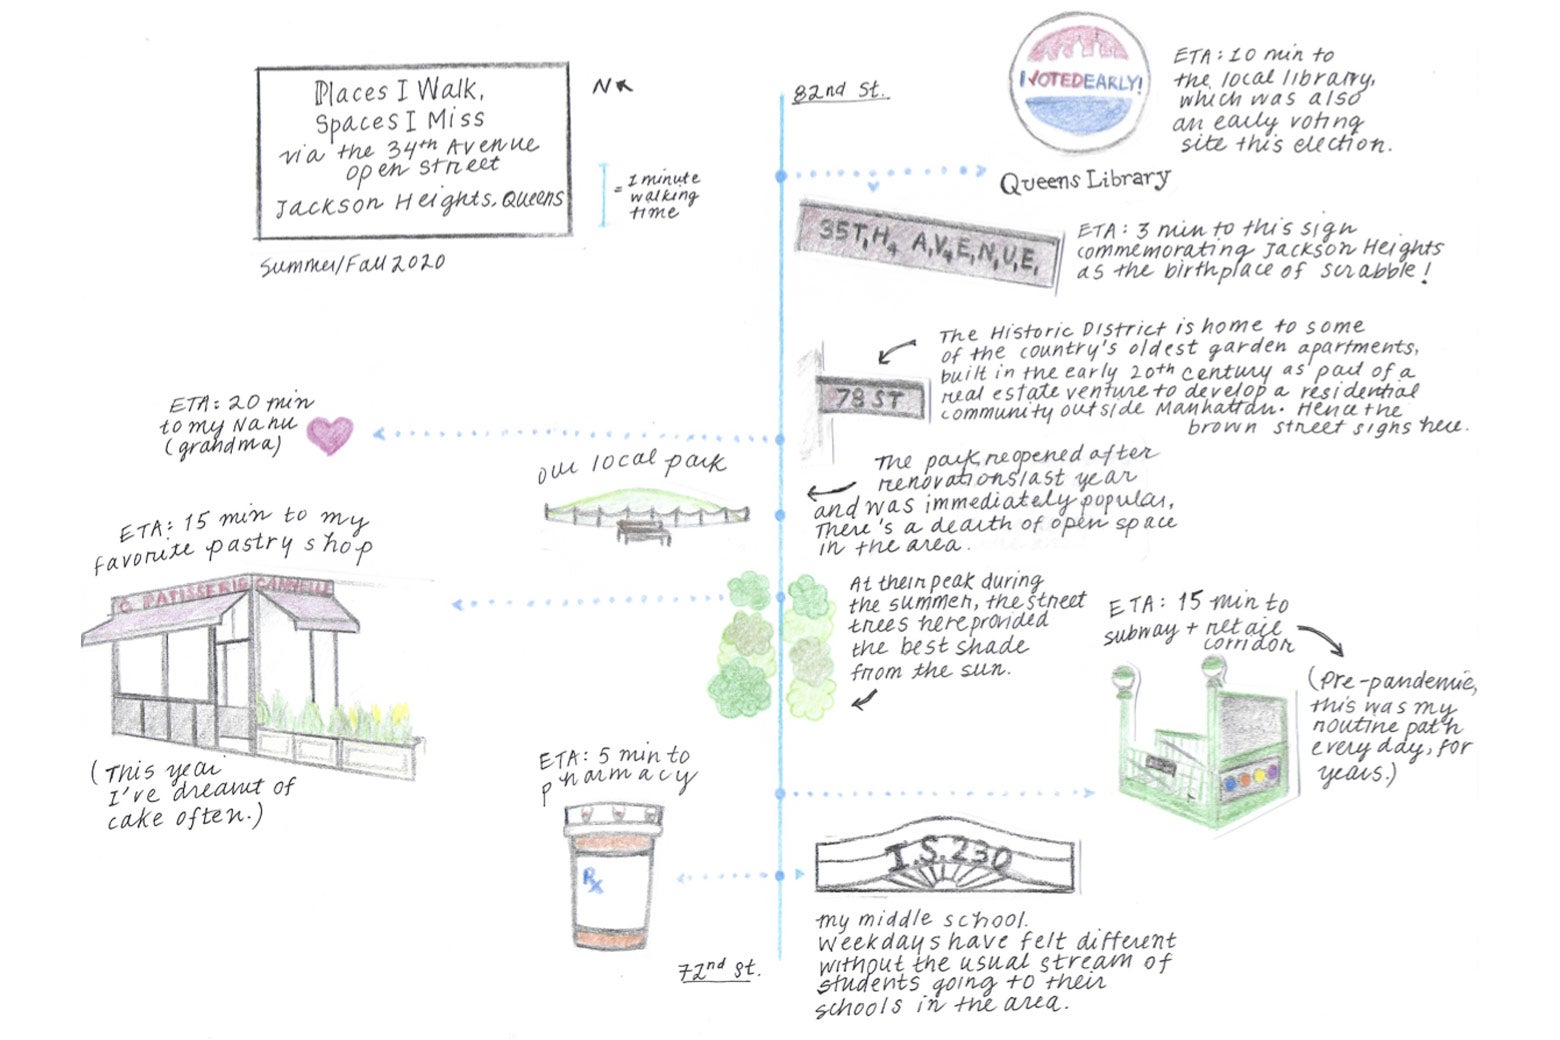 Places I Walk,
Spaces I Miss
via the 34th Avenue
open street
Jackson Heights, Queens
Summer/Fall 2020
N
= 1 minute
walking
time
82nd St.
I VOTED EARLY!
ETA: 10 min to
the local library,
which was also
an early voting
site this election.
Queens Library
35T₁H₄ A₁V₄E₁N₁U₁E₁
ETA: 3 min to this sign
commemorating Jackson Heights
as the birthplace of scrabble!
The Historic District is home to some
of the country's oldest garden apartments,
built in the early 20th century as part of a
real estate venture to develop a residential
community outside Manhattan. Hence the
brown street signs here.
78 ST
ETA: 20 min
to my Nanu
(grandma)
our local park
The park reopened after
renovations last year
and was immediately popular,
There's a dearth of open space
in the area.
ETA: 15 min to my
favorite pastry shop
C PATISSERIE CANNELLE
(This year
I've dreamt of
cake often.)
At their peak during
the summer, the street
trees here provided
the best shade
from the sun.
ETA: 15 min to
subway + retail
corridor
(Pre-pandemic,
this was my
routine path
every day, for
years.)
ETA: 5 min to
pharmacy
Rx
I.S. 230
my middle school.
Weekdays have felt different
without the usual stream of
students going to their
schools in the area.
72nd St.